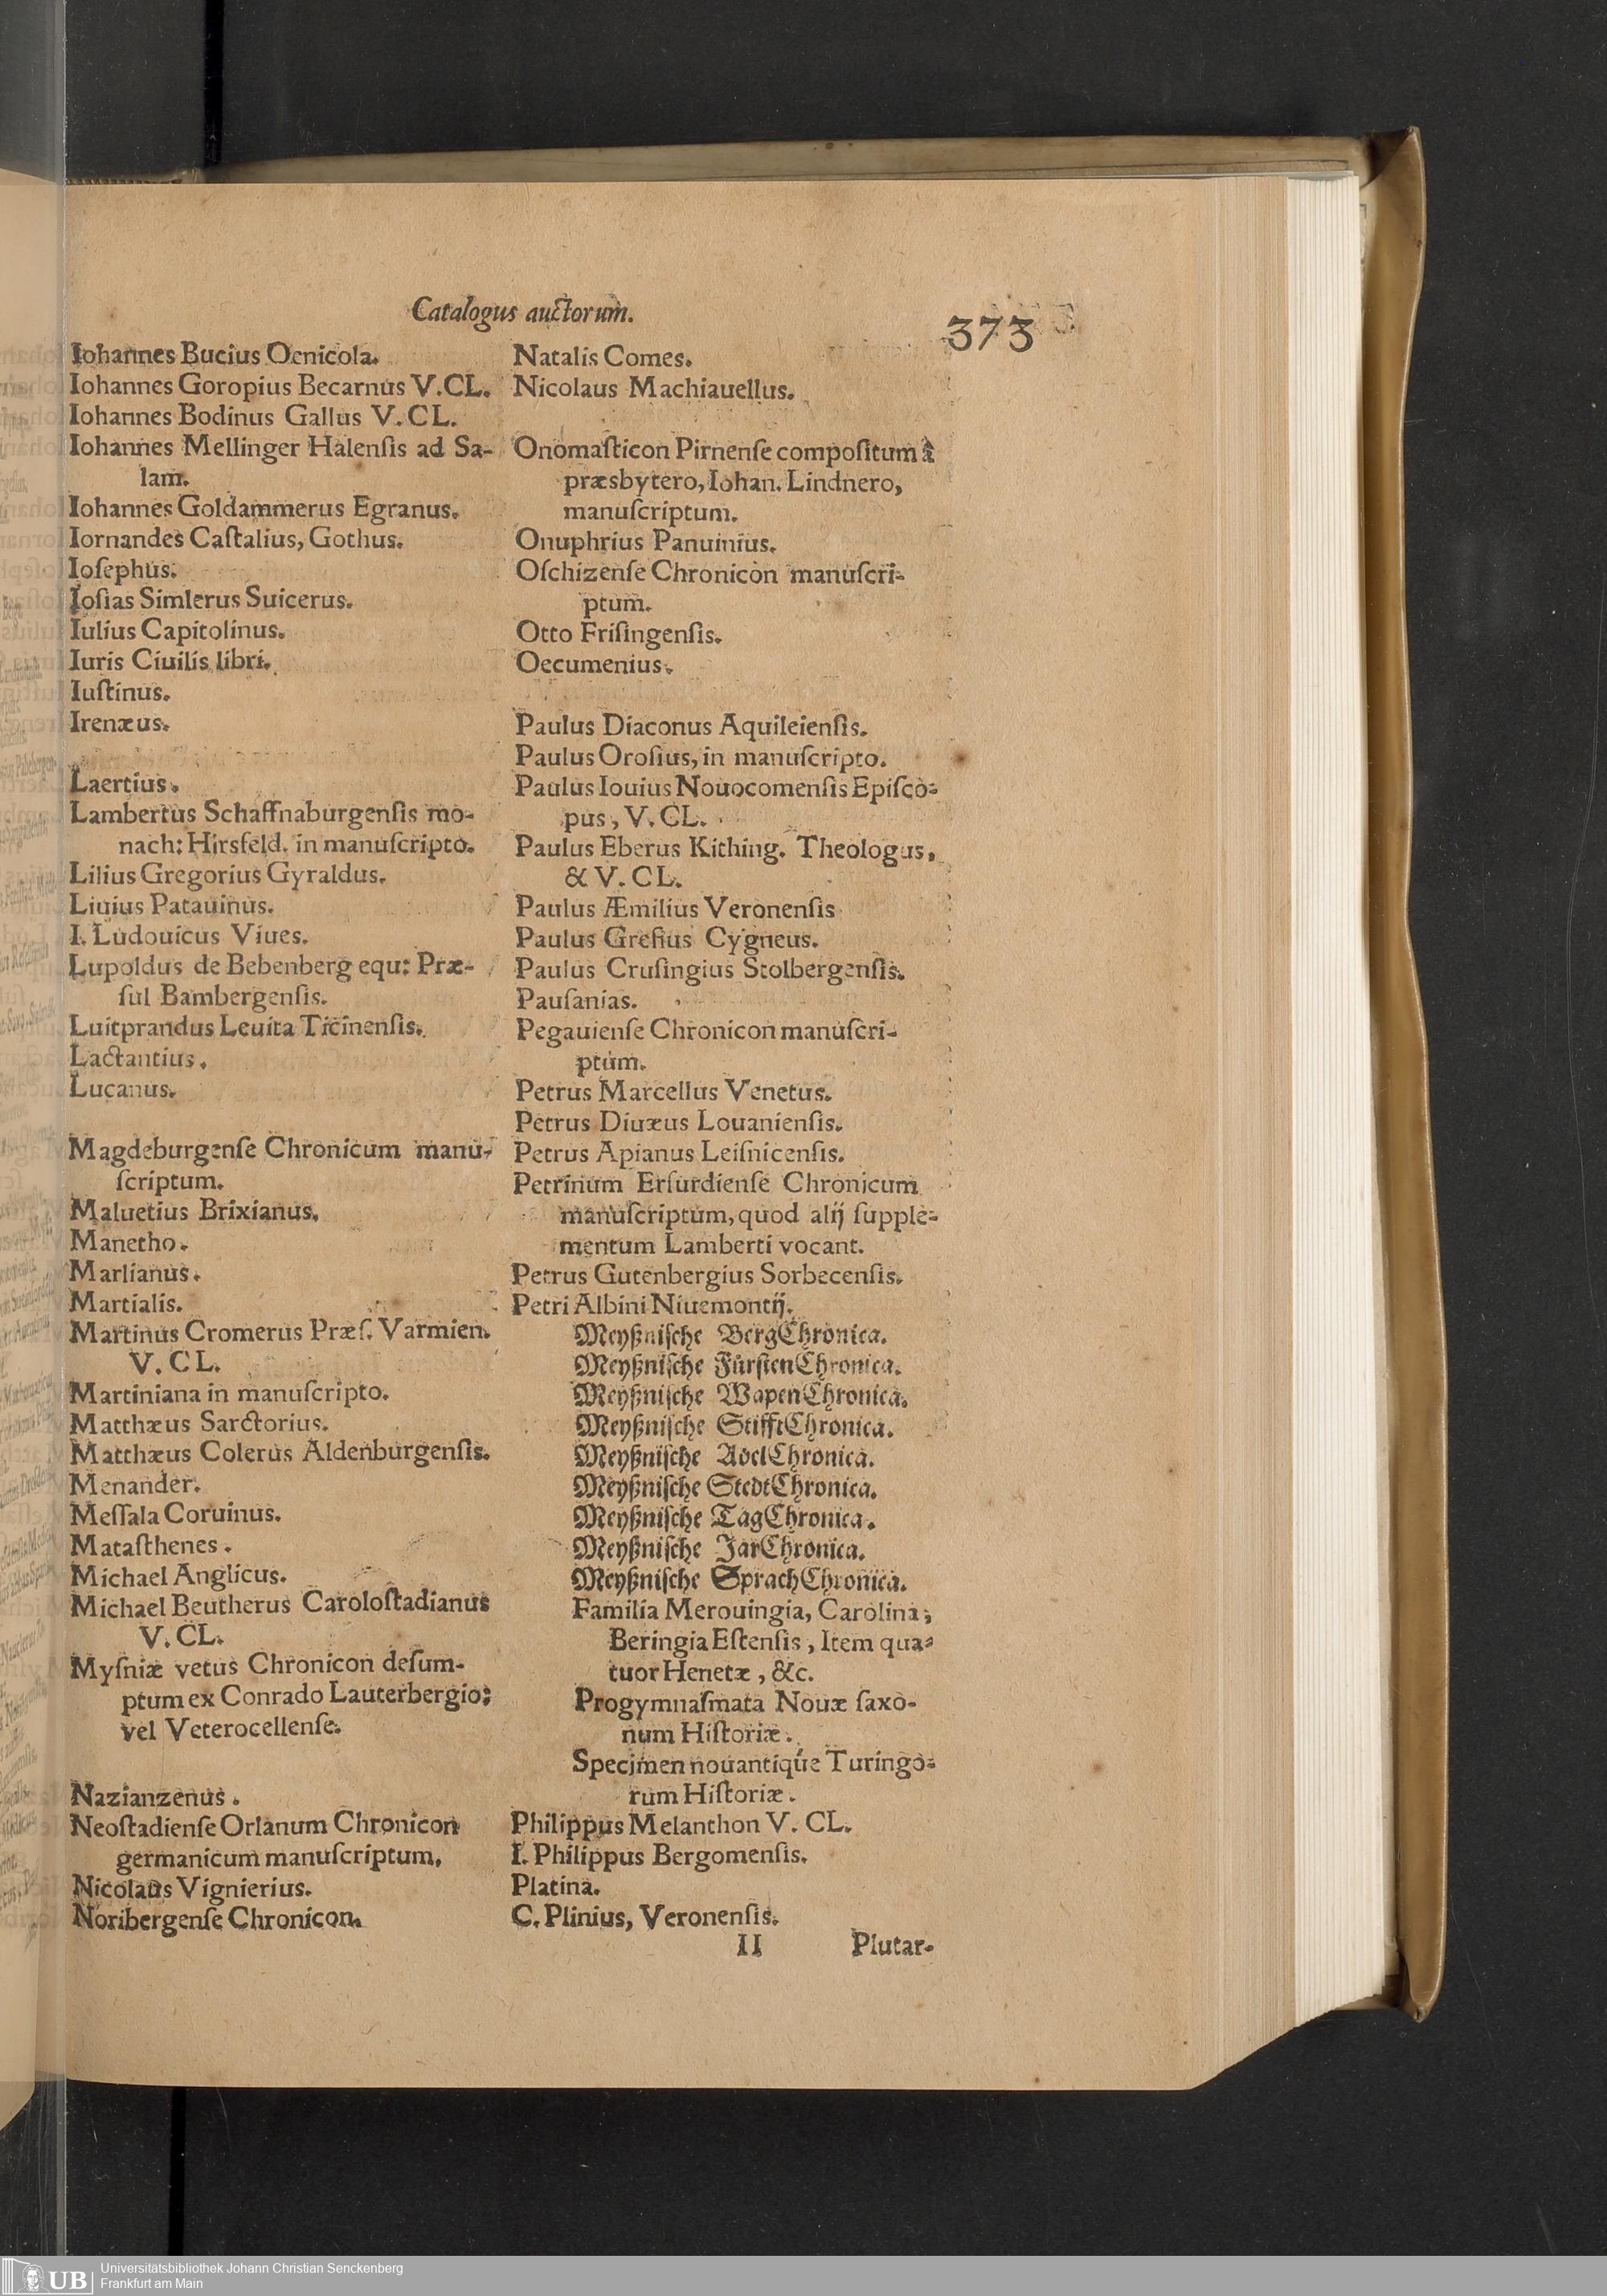 Catalogus auctorum.
373
Iohannes Bucius Oenicola.
Iohannes Goropius Becarnus V.CL.
Iohannes Bodinus Gallus V.CL.
Iohannes Mellinger Halenſis ad Sa-
lam.
Iohannes Goldammerus Egranus.
Iornandes Caſtalius, Gothus.
Ioſephus.
Ioſias Simlerus Suicerus.
Iulius Capitolinus.
Iuris Ciuilis libri.
Iuſtinus.
Irenæus.
Laertius.
Lambertus Schaffnaburgenſis mo-
nach: Hirsfeld. in manuſcripto.
Lilius Gregorius Gyraldus.
Liuius Patauinus.
I. Ludouicus Viues.
Lupoldus de Bebenberg equ: Præ-
ſul Bambergenſis.
Luitprandus Leuita Ticinenſis.
Lactantius.
Lucanus.
Magdeburgenſe Chronicum manu-
ſcriptum.
Maluetius Brixianus.
Manetho.
Marlianus.
Martialis.
Martinus Cromerus Præſ. Varmien.
V.CL.
Martiniana in manuſcripto.
Matthæus Sarctorius.
Matthæus Colerus Aldenburgenſis.
Menander.
Meſſala Coruinus.
Mataſthenes.
Michael Anglicus.
Michael Beutherus Caroloſtadianus
V.CL.
Myſniæ vetus Chronicon deſum-
ptum ex Conrado Lauterbergio;
vel Veterocellenſe.
Nazianzenus.
Neoſtadienſe Orlanum Chronicon
germanicum manuſcriptum,
Nicolaus Vignierius.
Noribergenſe Chronicon.
Natalis Comes.
Nicolaus Machiauellus.
Onomaſticon Pirnenſe compoſitum â
præsbytero, Iohan. Lindnero,
manuſcriptum.
Onuphrius Panuinius.
Oſchizenſe Chronicon manuſcri-
ptum.
Otto Friſingenſis.
Oecumenius.
Paulus Diaconus Aquileienſis.
Paulus Oroſius, in manuſcripto.
Paulus Iouius Nouocomenſis Epiſco-
pus, V.CL.
Paulus Eberus Kithing. Theologus,
& V.CL.
Paulus Æmilius Veronenſis
Paulus Grefius Cygneus.
Paulus Cruſingius Stolbergenſis.
Pauſanias.
Pegauienſe Chronicon manuſcri-
ptum.
Petrus Marcellus Venetus.
Petrus Diuæus Louanienſis.
Petrus Apianus Leiſnicenſis.
Petrinum Erfurdienſe Chronicum
manuſcriptum, quod alij ſupple-
mentum Lamberti vocant.
Petrus Gutenbergius Sorbecenſis.
Petri Albini Niuemontij.
Meyßniſche BergChronica.
Meyßniſche FürſtenChronica.
Meyßniſche WapenChronica.
Meyßniſche StifftChronica.
Meyßniſche AdelChronica.
Meyßniſche StedtChronica.
Meyßniſche TagChronica.
Meyßniſche JarChronica.
Meyßniſche SprachChronica.
Familia Merouingia, Carolina,
Beringia Eſtenſis, Item qua-
tuor Henetæ, &c.
Progymnaſmata Nouæ ſaxo-
num Hiſtoriæ.
Specimen nouantiquæ Turingo-
rum Hiſtoriæ.
Philippus Melanthon V. CL.
I. Philippus Bergomenſis.
Platina.
C. Plinius, Veronenſis.
II Plutar-
UB
Universitätsbibliothek Johann Christian Senckenberg
Frankfurt am Main